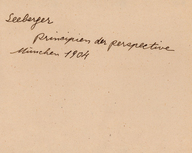 Seeberger
Principien der perspective
München 1904